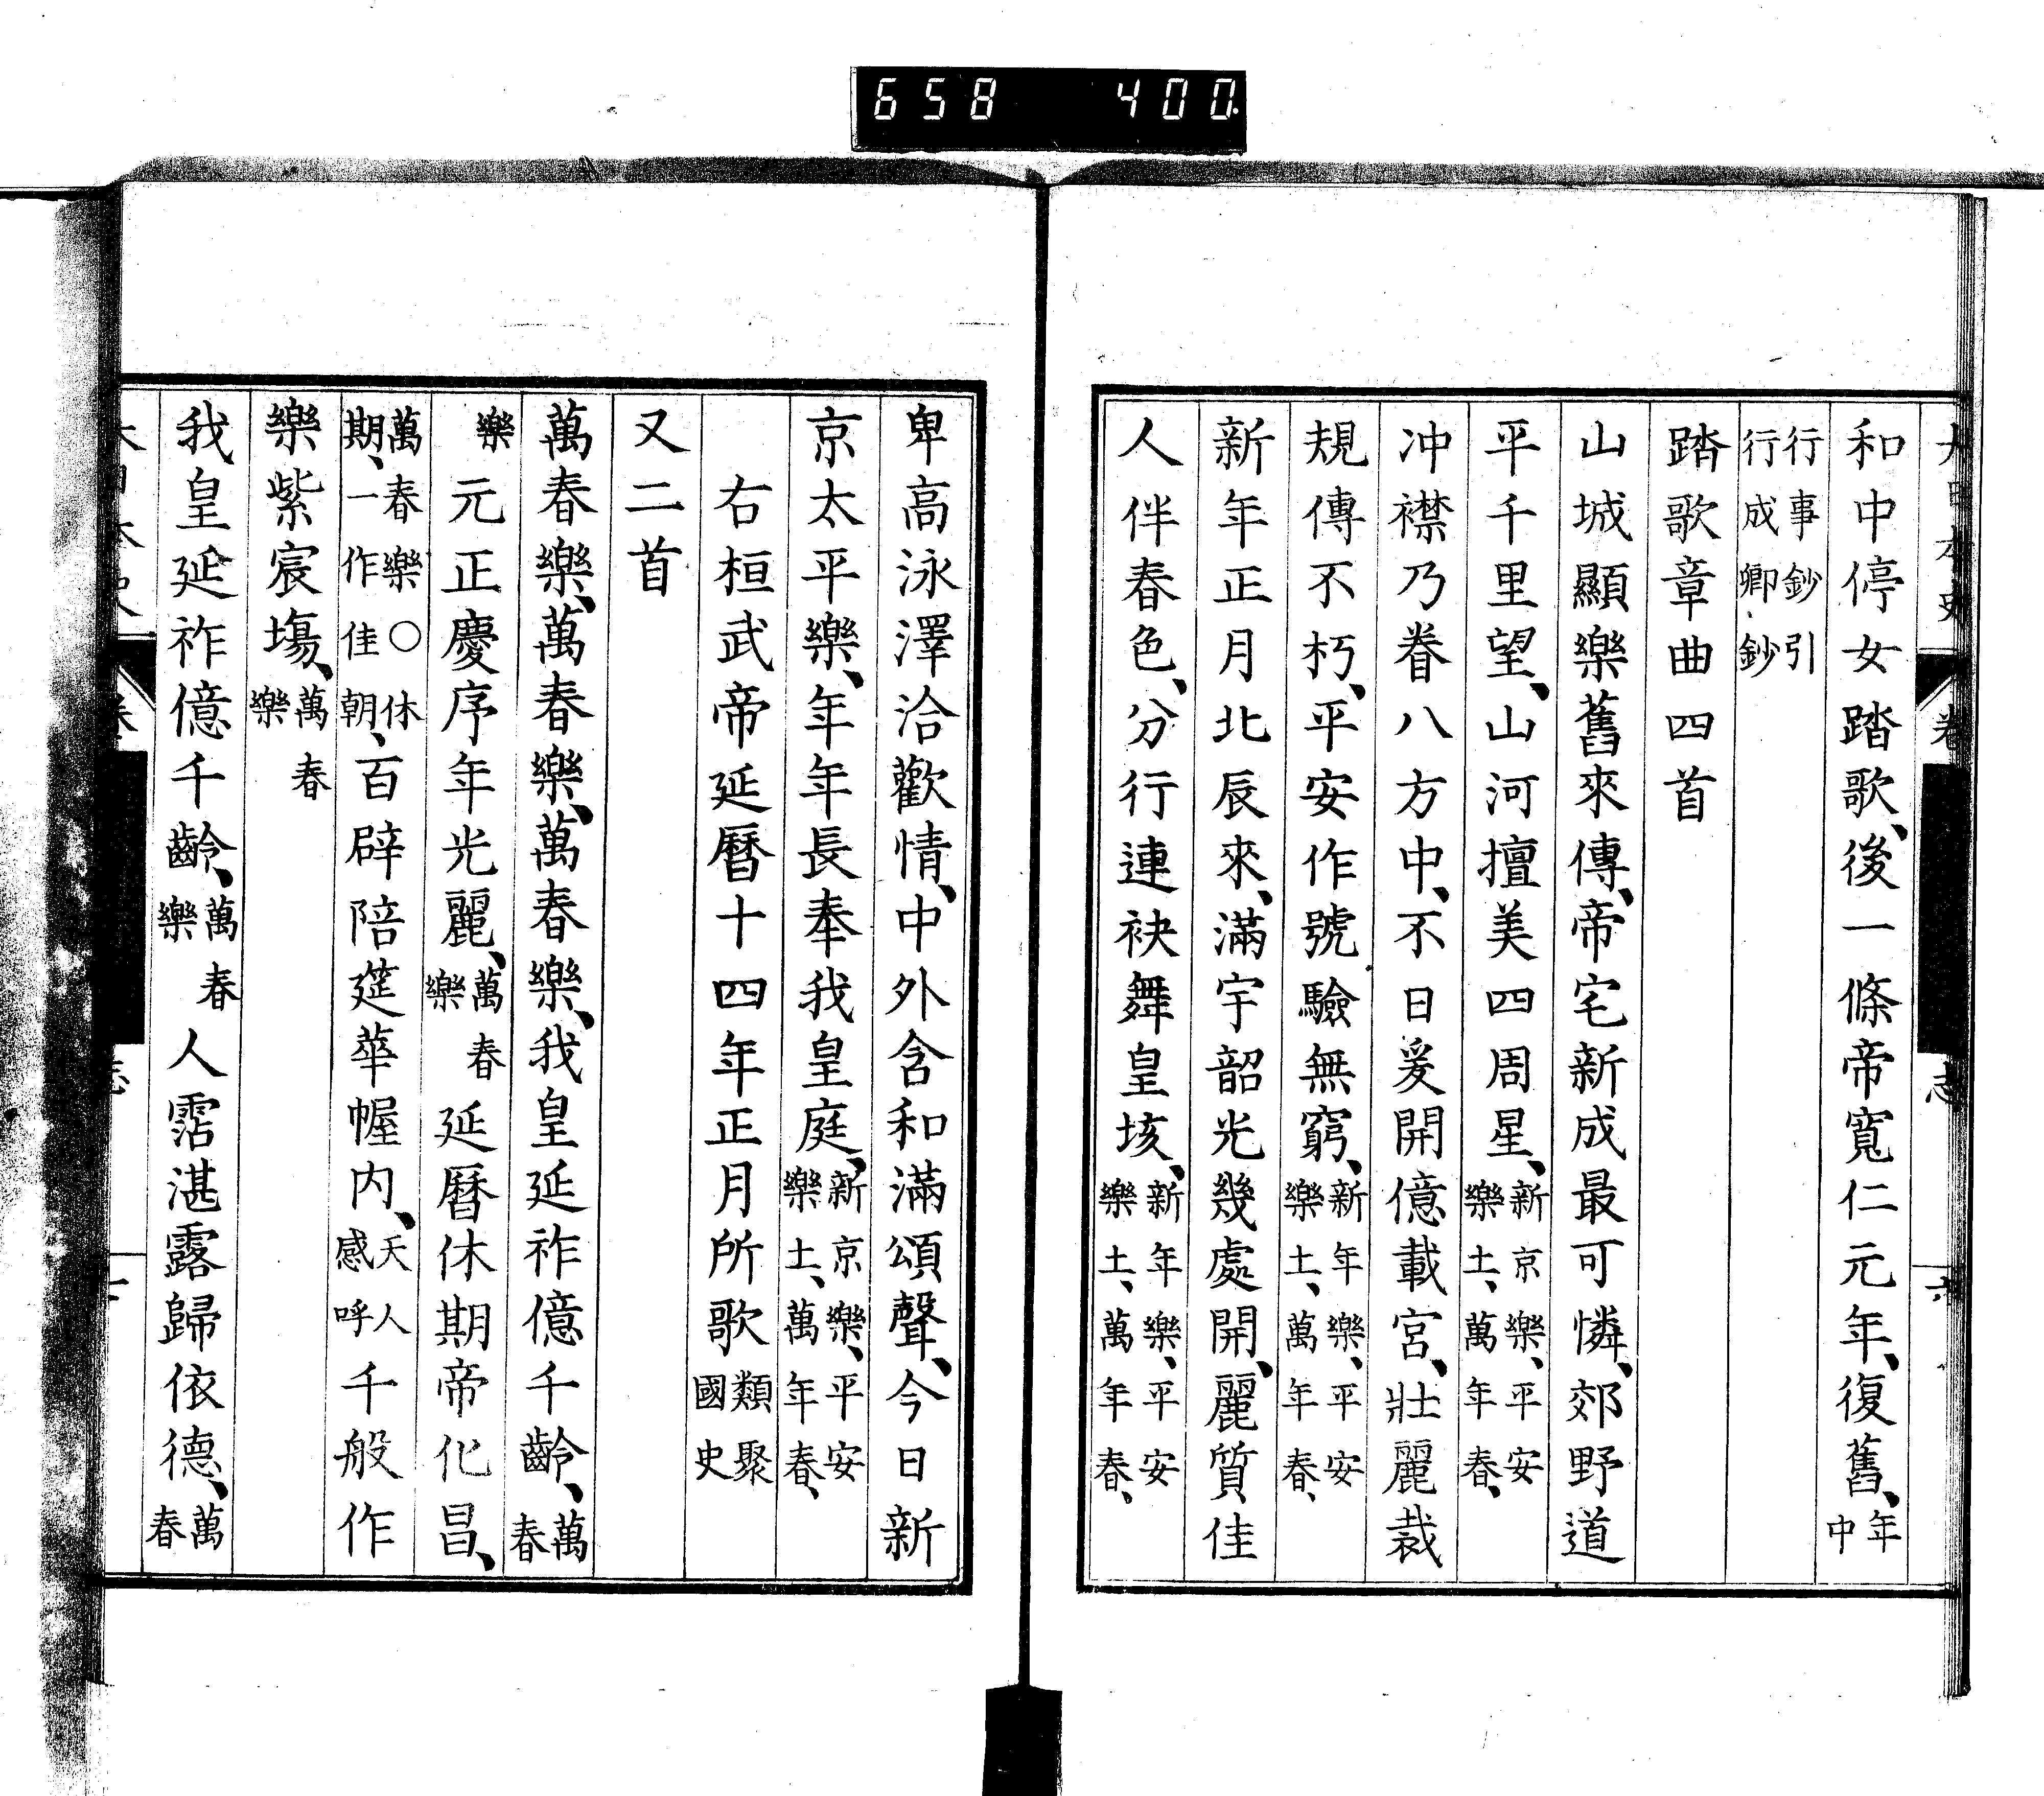 658 400
大日本史 卷 志 六
和中停女踏歌、後一條帝寬仁元年、復舊、年中
行事鈔引行成卿鈔
踏歌章曲四首
山城顯樂舊來傳、帝宅新成最可憐、郊野道
平千里望、山河擅美四周星、新京樂、平安樂土、萬年春、
冲襟乃眷八方中、不日爰開億載宮、壯麗裁
規傳不朽、平安作號驗無窮、新年樂、平安樂土、萬年春、
新年正月北辰來、滿宇韶光幾處開、麗質佳
人伴春色、分行連袂舞皇垓、新年樂、平安樂土、萬年春、
卑高泳澤洽歡情、中外含和滿頌聲、今日新
京太平樂、年年長奉我皇庭、新京樂、平安樂土、萬年春、
右桓武帝延曆十四年正月所歌類聚國史
又二首
萬春樂、萬春樂、萬春樂、我皇延祚億千齡、萬春
樂元正慶序年光麗、萬春樂延曆休期帝化昌、
萬春樂○休期、一作佳朝、百辟陪筵華幄内、天人感呼千般作
樂紫宸塲、萬春樂
我皇延祚億千齡、萬春樂人霑湛露歸依德、萬春
大日本史 卷 志 七